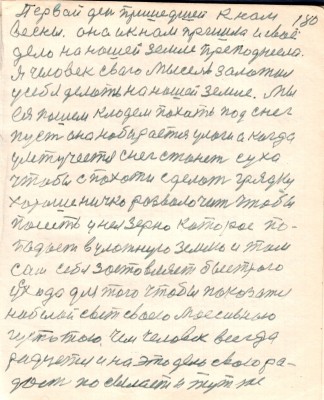 Первой ден пришедшей к нам 180
весны. она и к нам пришла и своё
дело на нашей земле преподнесла.
А человек своего мысель заложил
у себя делать на нашей земле. Мы
ея пашем кладем пахать под снег
пуст она набирается улаги а когда
улетучеется снег станет суха
чтобы с похоти сделат грядку
хорошеничко разволочит чтобы
посеять у нея зерно которое по-
падает в улажную землю и там
сам себя заставляет быстрого
ухода для того чтобы показат
на белой свет своего массивного
густого. Чем человек всегда
радуется и на это дело своего ра-
дость посылает и тут же